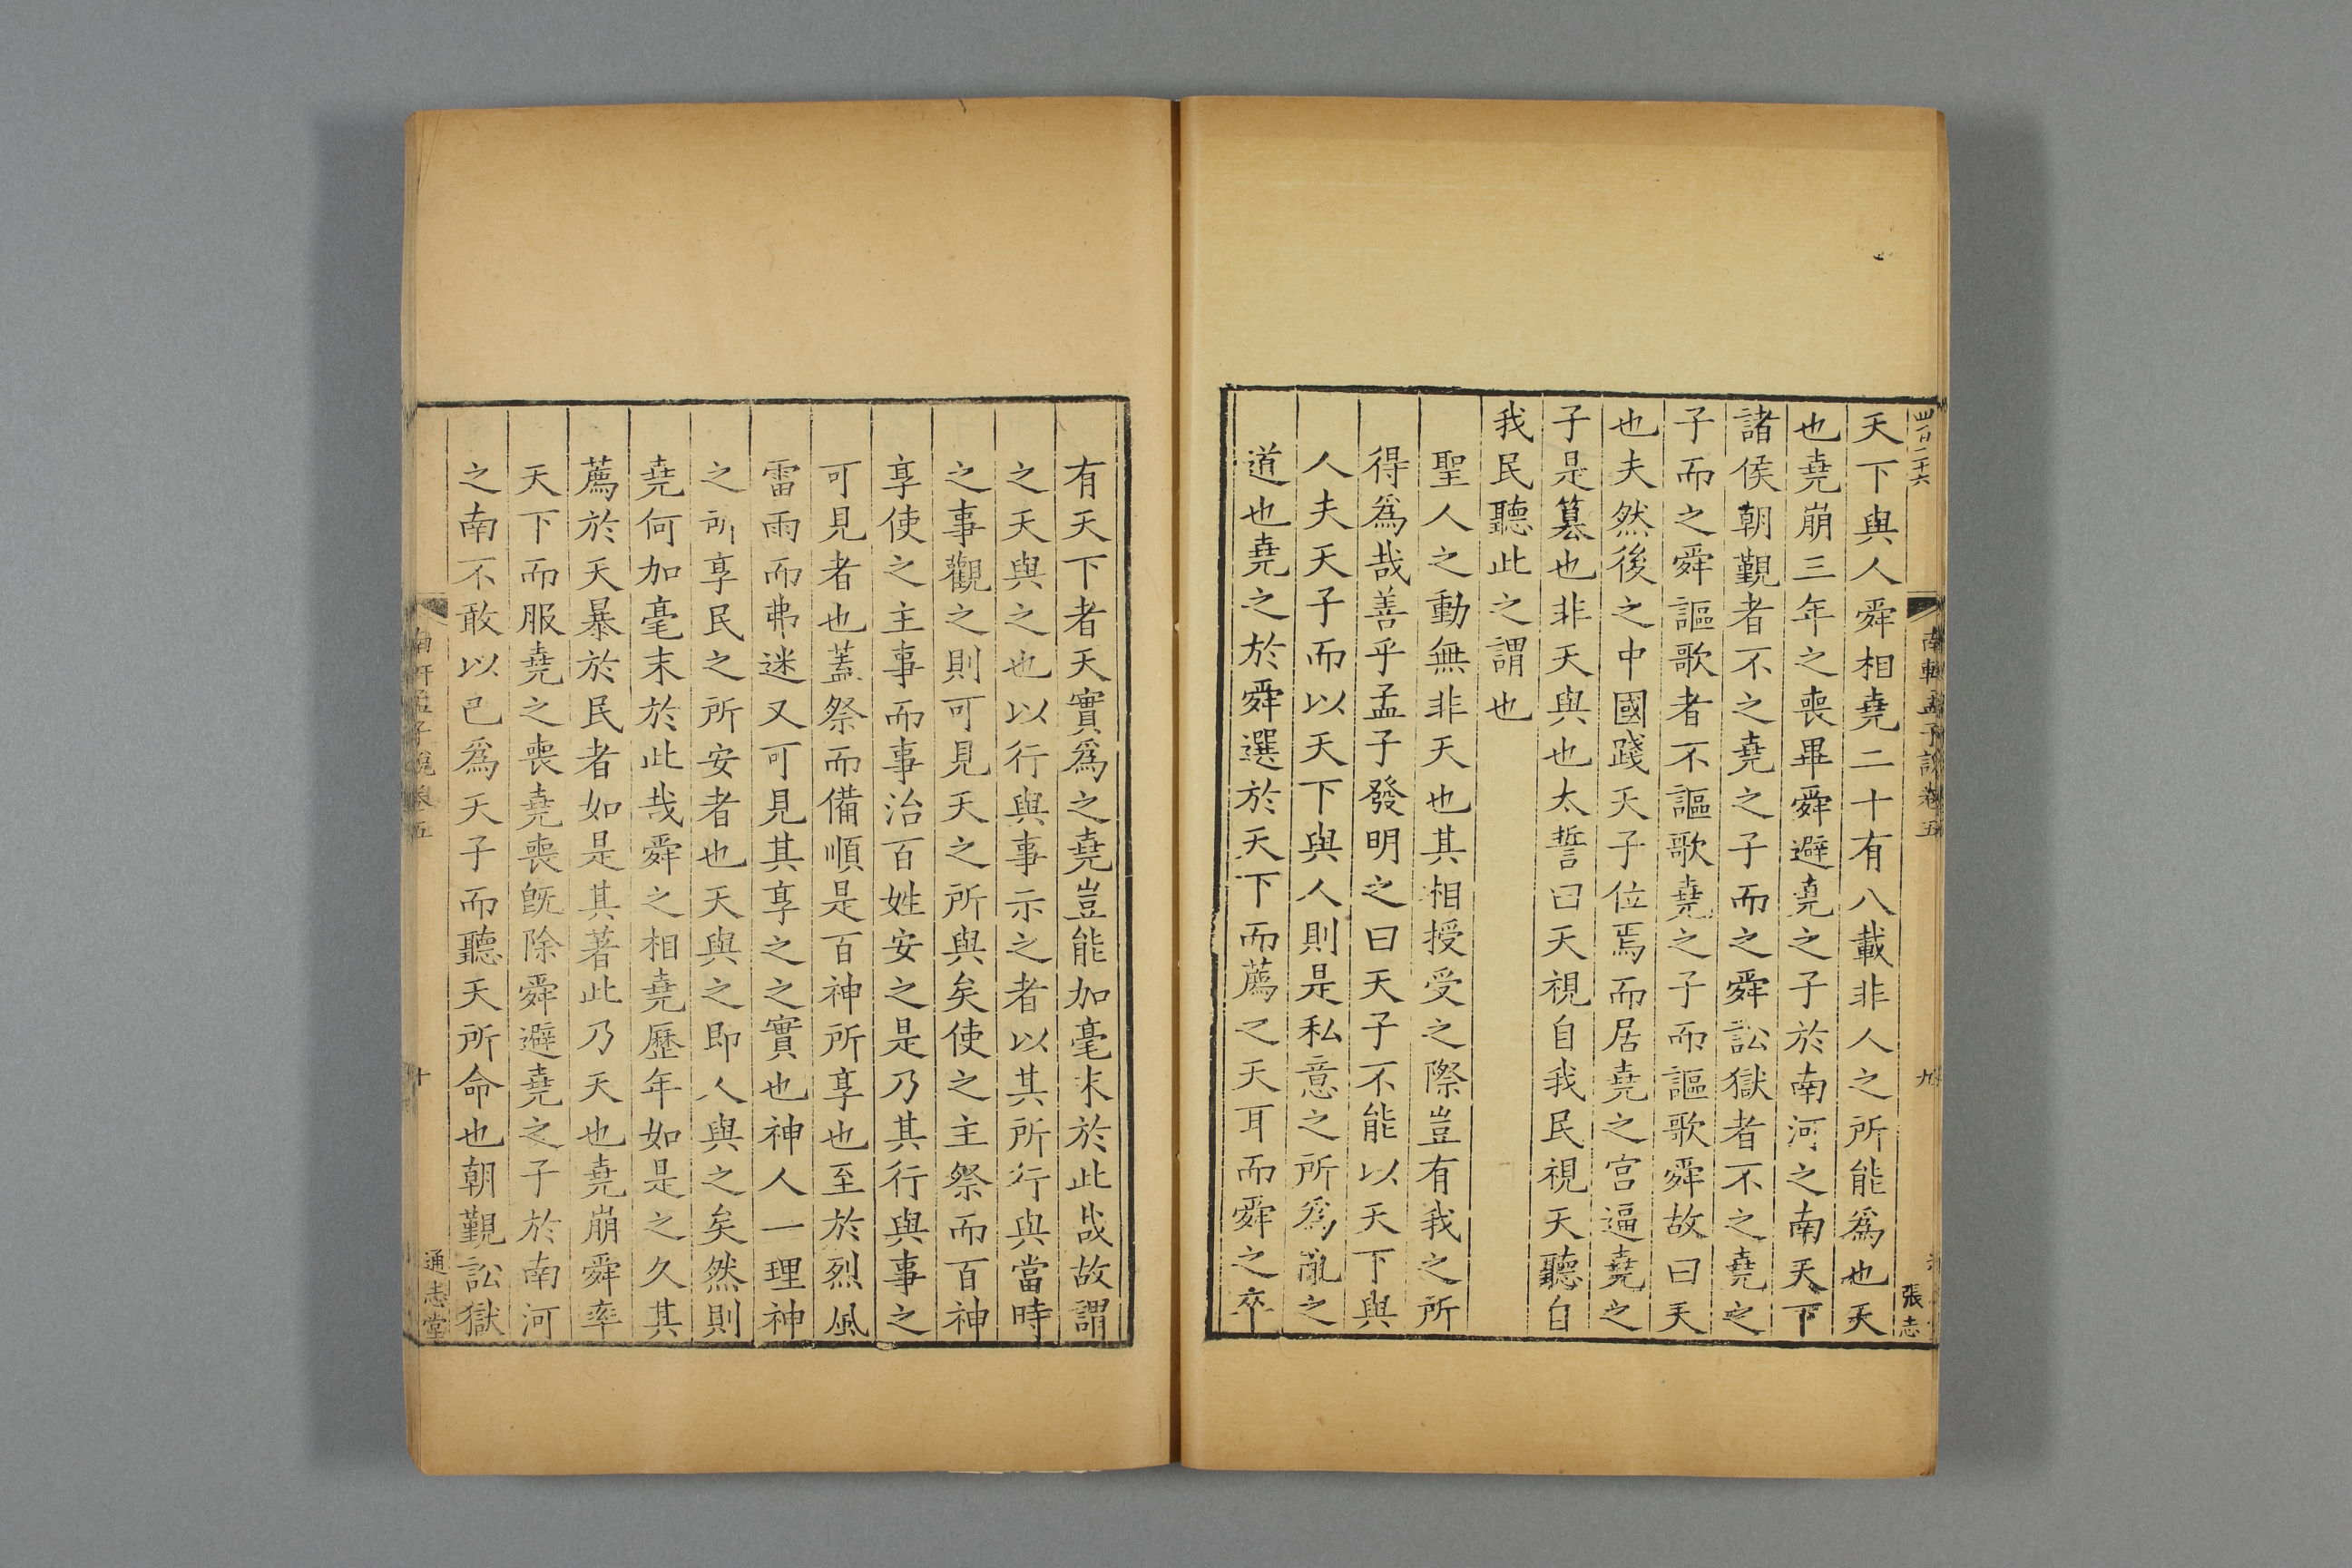 南軒孟子說卷五
九
張志
天下與人舜相堯二十有八載非人之所能爲也天
也堯崩三年之喪畢舜避堯之子於南河之南天下
諸侯朝覲者不之堯之子而之舜訟獄者不之堯之
子而之舜謳歌者不謳歌堯之子而謳歌舜故曰天
也夫然後之中國踐天子位焉而居堯之宫逼堯之
子是篡也非天與也太誓曰天視自我民視天聽自
我民聽此之謂也
聖人之動無非天也其相授受之際豈有我之所
得爲哉善乎孟子發明之曰天子不能以天下與
人夫天子而以天下與人則是私意之所爲亂之
道也堯之於舜選於天下而薦之天耳而舜之卒
有天下者天實爲之堯豈能加毫末於此哉故謂
之天與之也以行與事示之者以其所行與當時
之事觀之則可見天之所與矣使之主祭而百神
享使之主事而事治百姓安之是乃其行與事之
可見者也蓋祭而備順是百神所享也至於烈風
雷雨而弗迷又可見其享之之實也神人一理神
之所享民之所安者也天與之即人與之矣然則
堯何加毫末於此哉舜之相堯歷年如是之久其
薦於天暴於民者如是其著此乃天也堯崩舜率
天下而服堯之喪堯喪旣除舜避堯之子於南河
之南不敢以已爲天子而聽天所命也朝覲訟獄
南軒孟子說卷五
十
通志堂